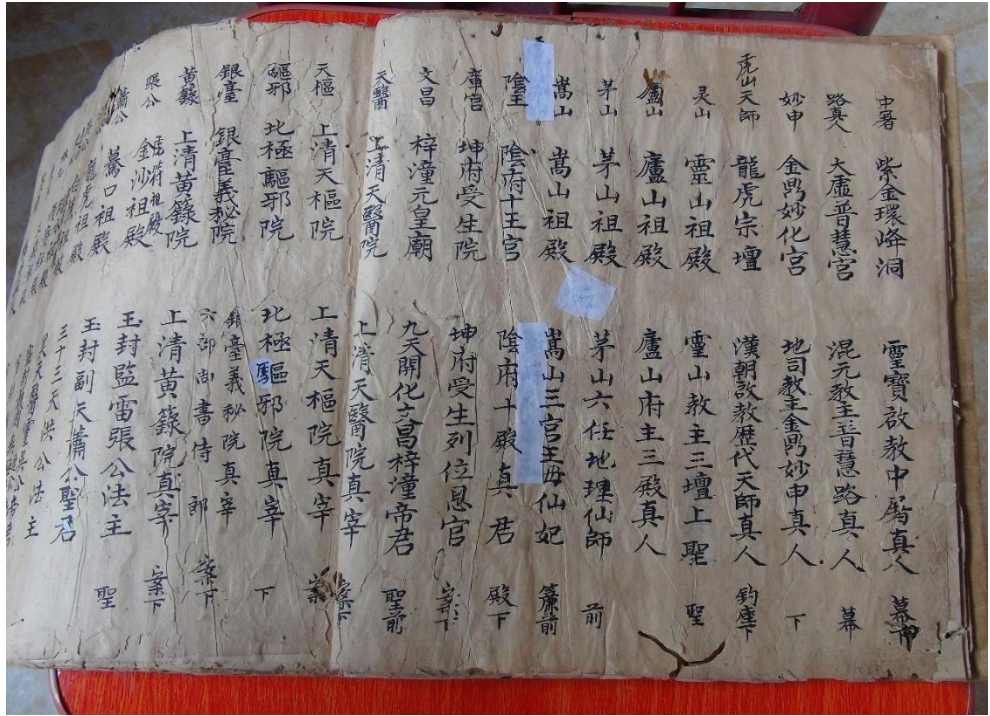 中署 紫金環峰洞 靈寶啟教中屠真人 幕前
路真人 大虛普慧宮 混元教主普慧路真人 幕
妙申 金鼎妙化宮 地司教主金鼎妙申真人 下
虎山天師 龍虎宗壇 漢朝啟教歷代天師真人 鈞座下
灵山 靈山祖殿 靈山教主三壇上聖 聖
廬山 廬山祖殿 廬山府主三殿真人
茅山 茅山祖殿 茅山六任地理仙師 前
嵩山 嵩山祖殿 嵩山三宮王母仙妃 簾前
陰王 陰府十王宮 陰府十殿真君 殿下
庫官 坤府受生院 坤府受生列位恩官 案下
文昌 梓潼元皇廟 九天開化文昌梓潼帝君 聖前
天醫 上清天醫院 上清天醫院真宰 案下
天樞 上清天樞院 上清天樞院真宰 案
驅邪 北極驅邪院 北極驅邪院真宰 下
銀臺 銀臺義秘院 銀臺義秘院真宰
六部尚書侍郎 案下
黃籙 上清黃籙院 上清黃籙院真宰 案下
張公 金沙祖殿 玉封監雷張公法主 聖
蕭公 驀口祖殿 玉封副天蕭公聖君
龍虎祖殿 三十三天洪公法主